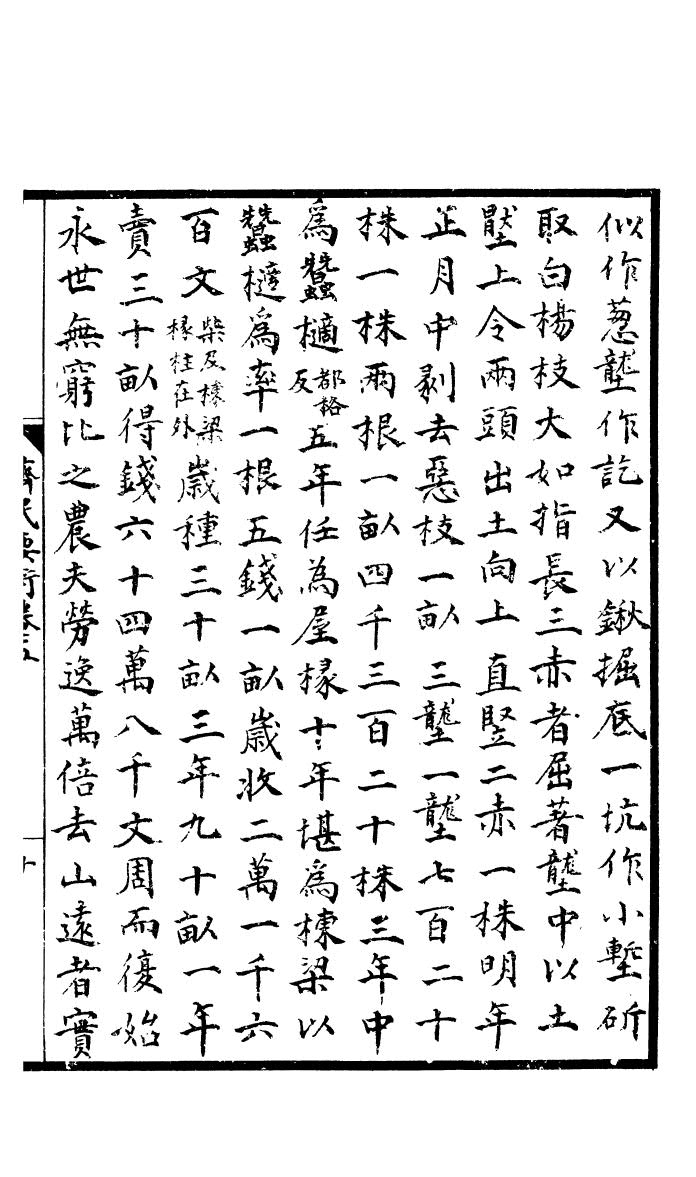 似作葱壟作訖又以鍬掘底一坑作小壍斫
取白楊枝大如指長三赤者屈著壟中以土
壓上令兩頭出土向上直竪二赤一株明年
正月中剥去惡枝一畝三壟一壟七百二十
株一株兩根一畝四千三百二十株三年中
為蠶樀都格反五年任為屋椽十年堪為棟梁以
蠶樀為率一根五錢一畝歲收二萬一千六
百文柴及樑梁椽柱在外歲種三十畝三年九十畝一年
賣三十畝得錢六十四萬八千文周而復始
永世無窮比之農夫勞逸萬倍去山遠者實
齊民要術卷五
十